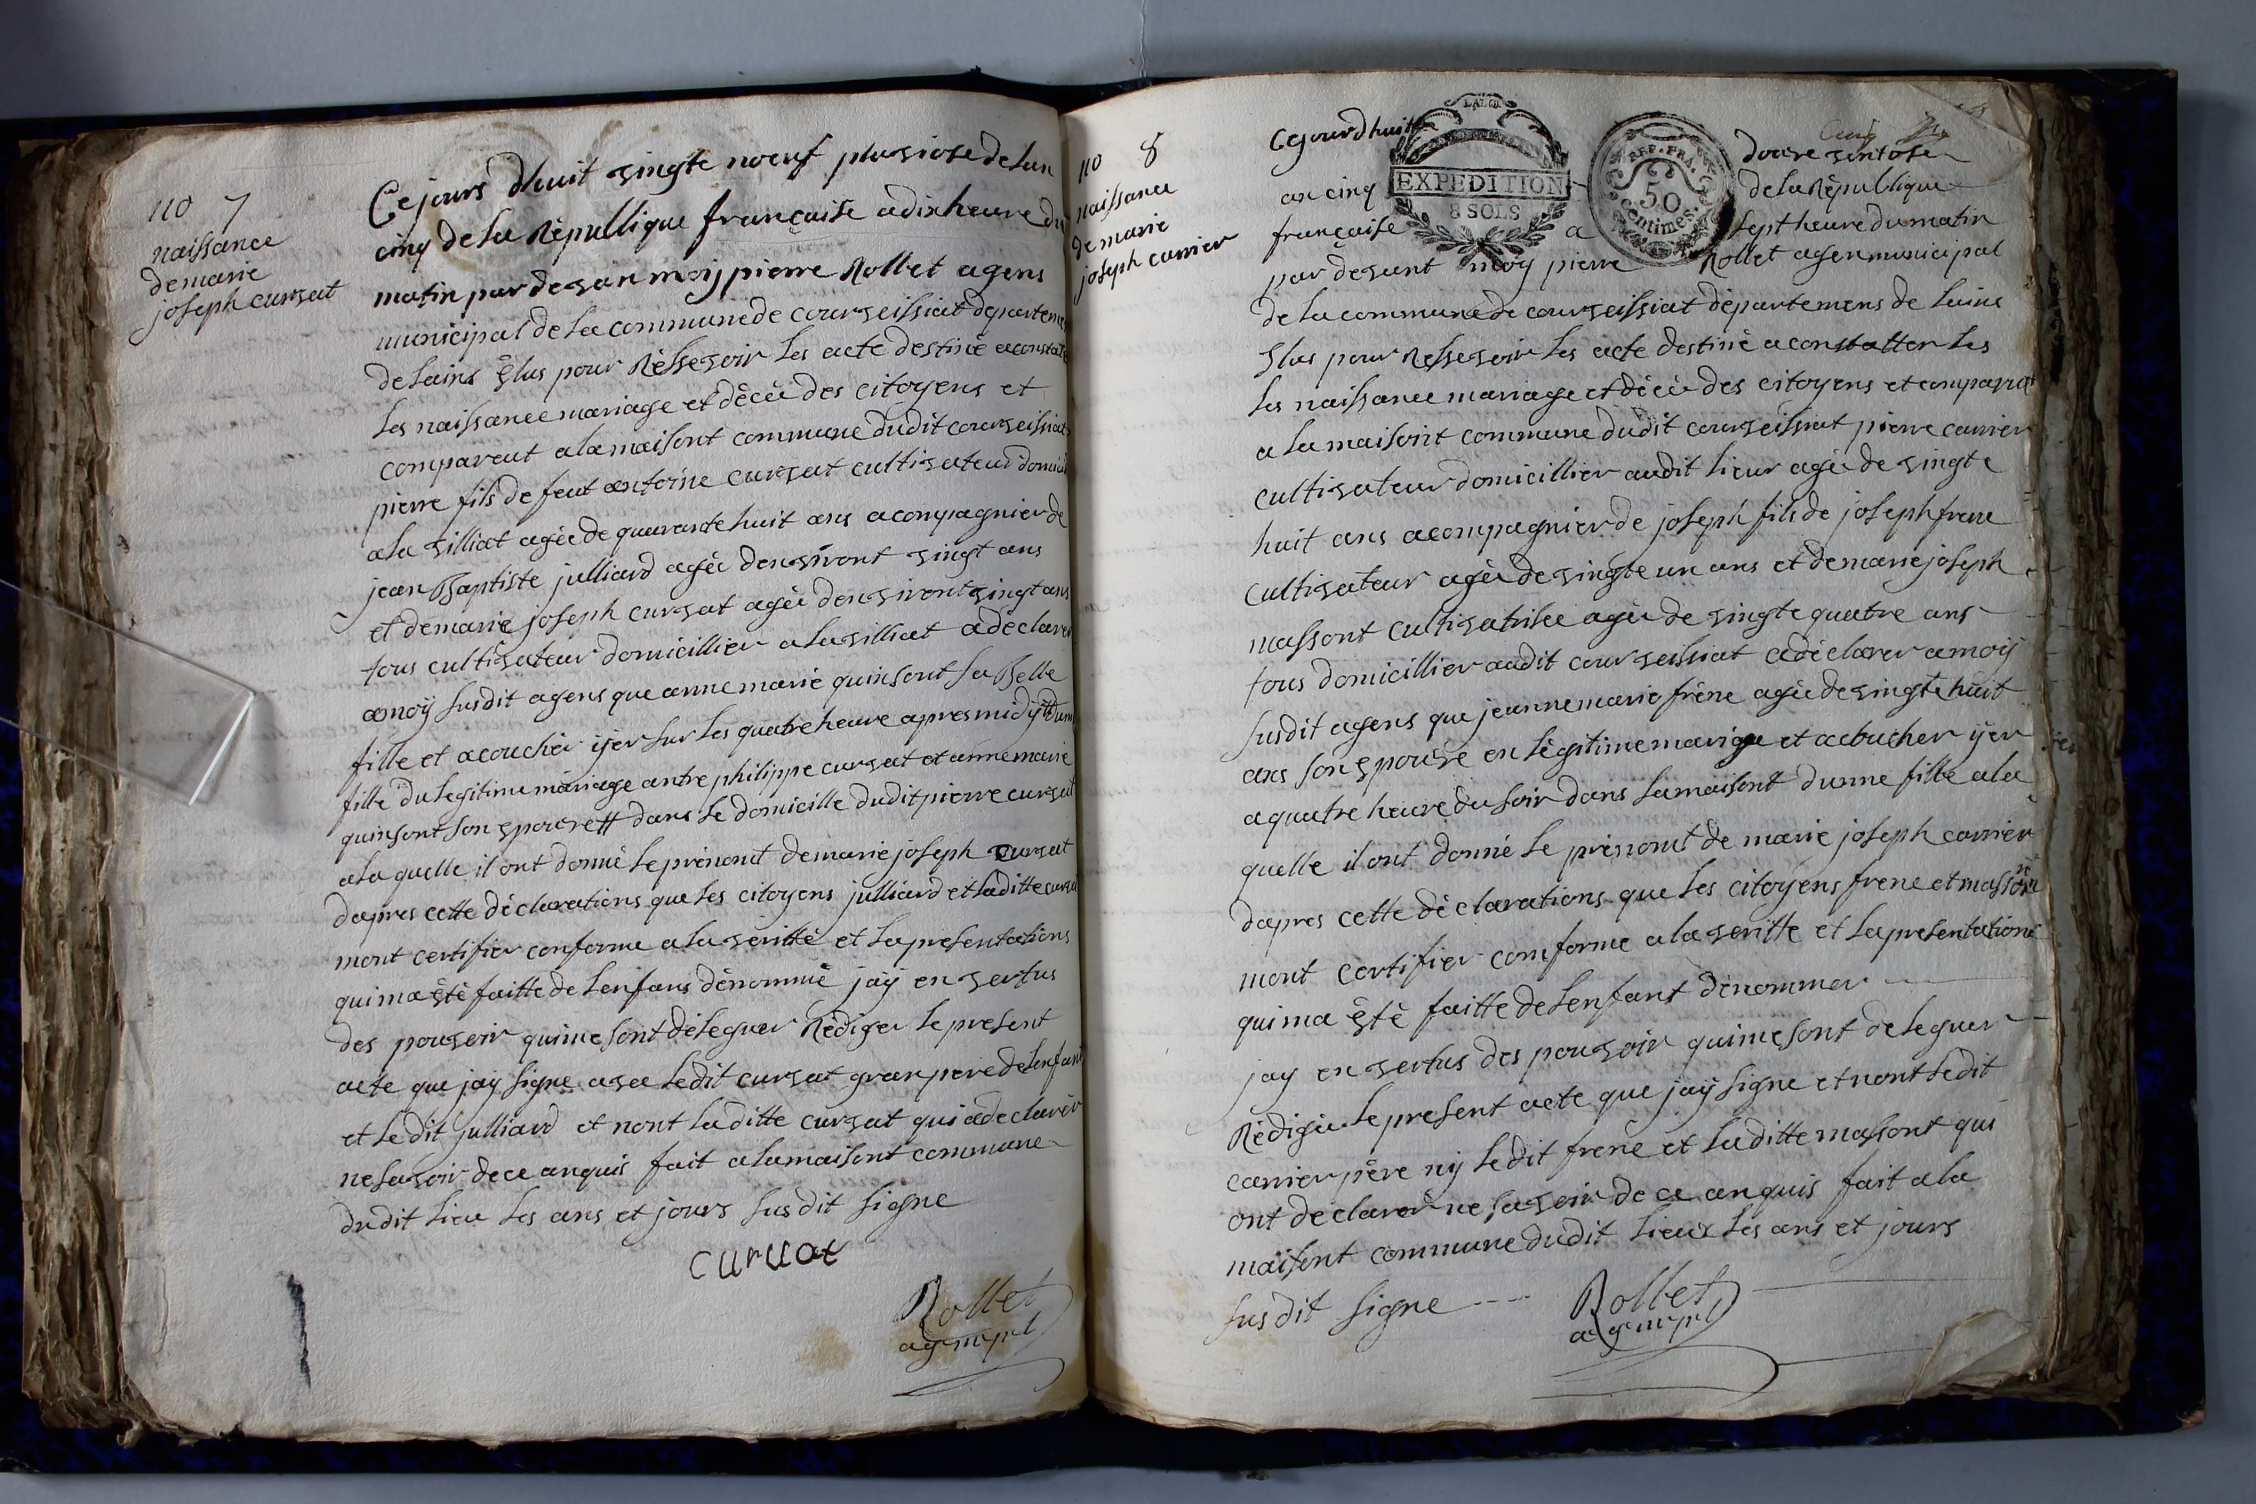 no 7
naissance
de marie
joseph curvat
Cejours dhuit vingte noeuf pluviose de lan
cinq de la Republique francaise a dix heure du
matin par devan moy pierre Rollet agens
municipal de la commune de courveissiat departemen
de lains élus pour Ressevoir les acte destiné a constate
les naissance mariage et décéè des citoyens et
comparent a la maisont commune dudit courveissiat
pierre fils de feut antoine curvat cultivateur domicil
a la villiat agèe de quarante huit ans acompagnier de
jean Baptiste julliard agèe denviront vingt ans
et de marie joseph curvat agèe denviront vingt ans
tous cultivateur domicillier a la villiat a déclarer
a moÿ susdit agens que anne marie quinsont sa Belle
fille et acouchèr ÿer sur les quatre heure apres midÿ # dune
fille # du legitime mariage antre philippe curvat et anne marie
quinsont son epouse # dans le domicille dudit pierre curvat
a la quelle il ont donné le prénomt de marie joseph curvat
dapres cette déclarations que les citoyens julliard et la ditte curvat
mont certifier conforme a la veritté et la presentations
qui ma été faitte de lenfans dénommé jaÿ en vertus
des pouvoir qui me sont déleguer Rédiger le present
acte que jaÿ signe avec ledit curvat gran pere de lenfant
et le dit julliard et nont la ditte curvat qui a declarér
ne savoir de ce anquis fait a la maisont commune
dudit lieu les ans et jours susdit signe
curuat
Rollet
agt mpl
no 8
naissance
de marie
joseph carrier
Cejourdhuit douze ventose
an cinq de la République
française a sept heure du matin
LALOI
EXPEDITION
8 SOLS
REP. FRA.
50
centimes.
par devant moy pierre Rollet agen municipal
de la commune de courveissiat départemens de lains
élus pour Ressevoir les acte destiné a constatter les
les naissance mariage et décéè des citoyens et comparat
a la maisont commune dudit courveissiat pierre carrier
cultivateur domicillier audit lieux agèe de vingte
huit ans acompagnier de joseph fils de joseph frene
cultivateur agèe de vingte un ans et de marie joseph
massont cultivatrisce agèe de vingte quatre ans
tous domicillier audit courveissiat a déclarer a moÿ
susdit agens que jeanne marie frène agèe de vingte huit
ans son epouse en légitime mariage et acoucher ÿer
a quatre heure du soir dans sa maisont dunne fille a la
quelle il ont donné le prenomt de marie joseph carrier
dapres cette déclarations que les citoyens frene et massont
mont certifier conforme a la veritte et la presentations
qui ma été faitte de lenfant dénommer
jay en vertus des pouvoir qui me sont deleguer
Rédigée le present acte que jaÿ signe et nont ledit
carrier père nÿ ledit frene et la ditte massont qui
ont declarér ne savoir de ce anquis fait a la
maisont commune dudit lieux les ans et jours
susdit signe
Rollet
agt mpl